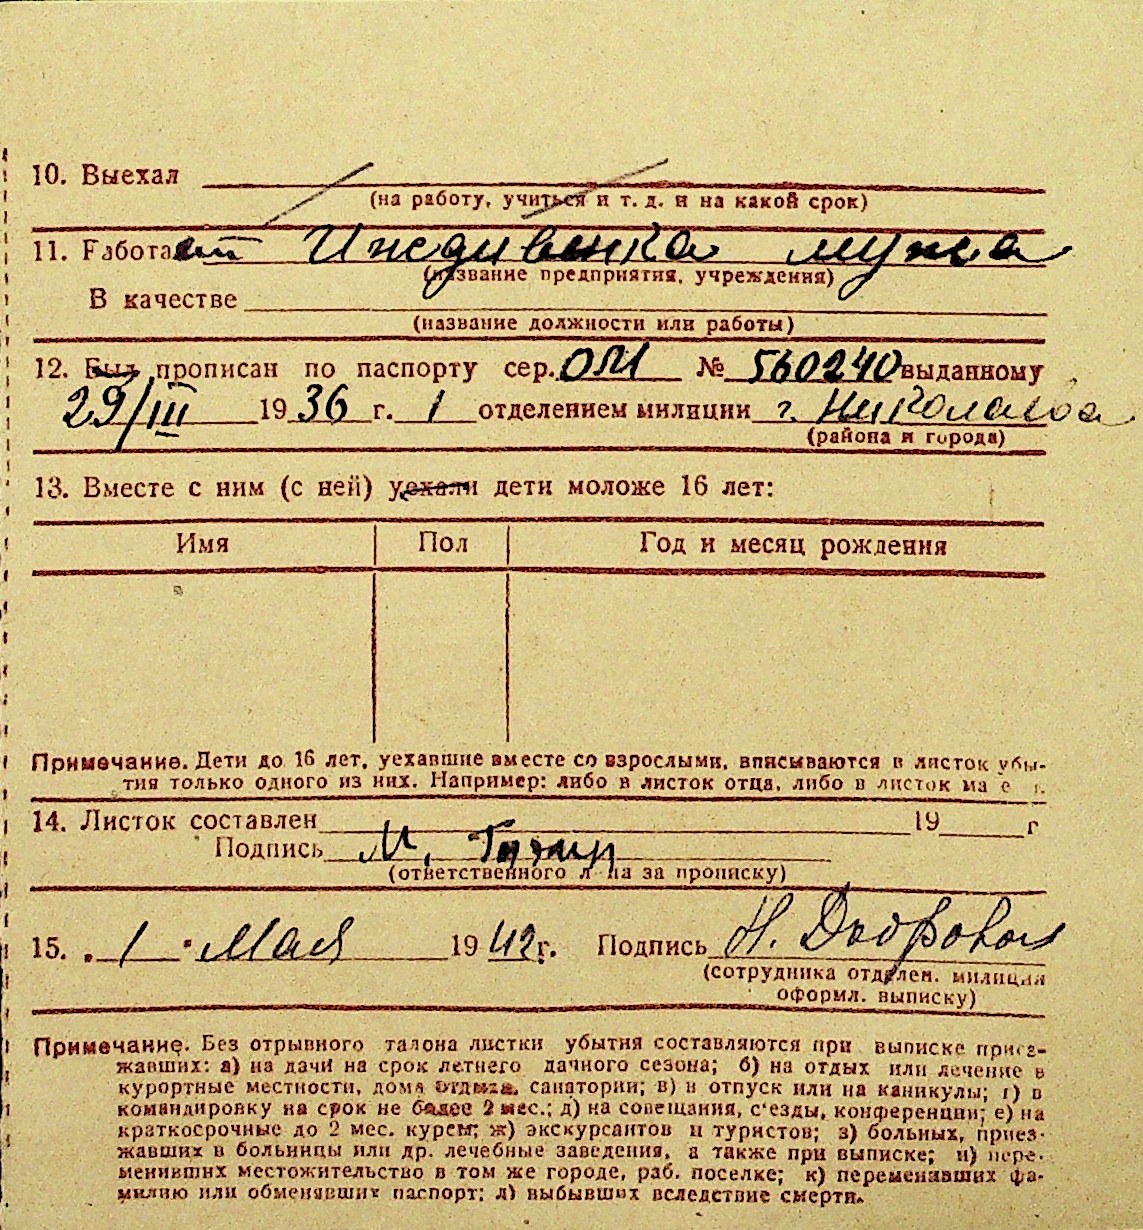 10. Выехал
(на работу, учиться и т. д. и на какой срок)
11. Работает Иждивенка мужа
(название предприятия, учреждения)
В качестве
(название должности или работы)
12. Был прописан по паспорту сер. ОМ № 560240 выданному
29/III 1936 г. 1 отделением милиции г. Николаева
(района и города)
13. Вместе с ним (с ней) уехали дети моложе 16 лет:
Имя Пол Год и месяц рождения
Примечание. Дети до 16 лет, уехавшие вместе со взрослыми, вписываются в листок убы-
тия только одного из них. Например: либо в листок отца, либо в листок
14. Листок составлен 19 г
Подпись М.
(ответственного лица за прописку)
15. „1" Мая 1942 г. Подпись Н.
(сотрудника отделен. милиции
оформл. выписку)
Примечание. Без отрывного талона листки убытия составляются при выписке приез-
жавших: а) на дачи на срок летнего дачного сезона; б) на отдых или лечение в
курортные местности, дома отдыха, санатории; в) в отпуск или на каникулы; г) в
командировку на срок не более 2 мес.; д) на совещания, с'езды, конференции; е) на
краткосрочные до 2 мес. курсы; ж) экскурсантов и туристов; з) больных, приез-
жавших в больницы или др. лечебные заведения, а также при выписке; и) пере-
менивших местожительство в том же городе, раб. поселке; к) переменивших фа-
милию или обменявших паспорт; л) выбывших вследствие смерти.